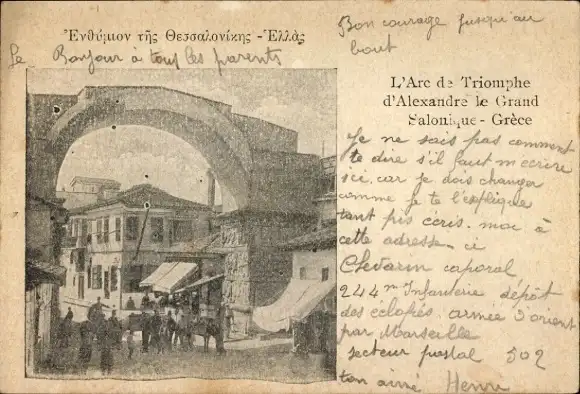 Ἐνθύμιον τῆς Θεσσαλονίκης - Ἑλλὰς
Le Bonjour à tous les parents
Bon courage jusqu'au
bout
L'Arc de Triomphe
d'Alexandre le Grand
Salonique - Grèce
Je ne sais pas comment
te dire s'il faut m'ecrire
ici. car je dois changer
comme je te l'explique
tant pis écris. moi à
cette adresse. ci
caporal
244me Infanterie dépôt
des éclopés. armée d'orient
par Marseille
secteur postal 502
ton aimé Henri